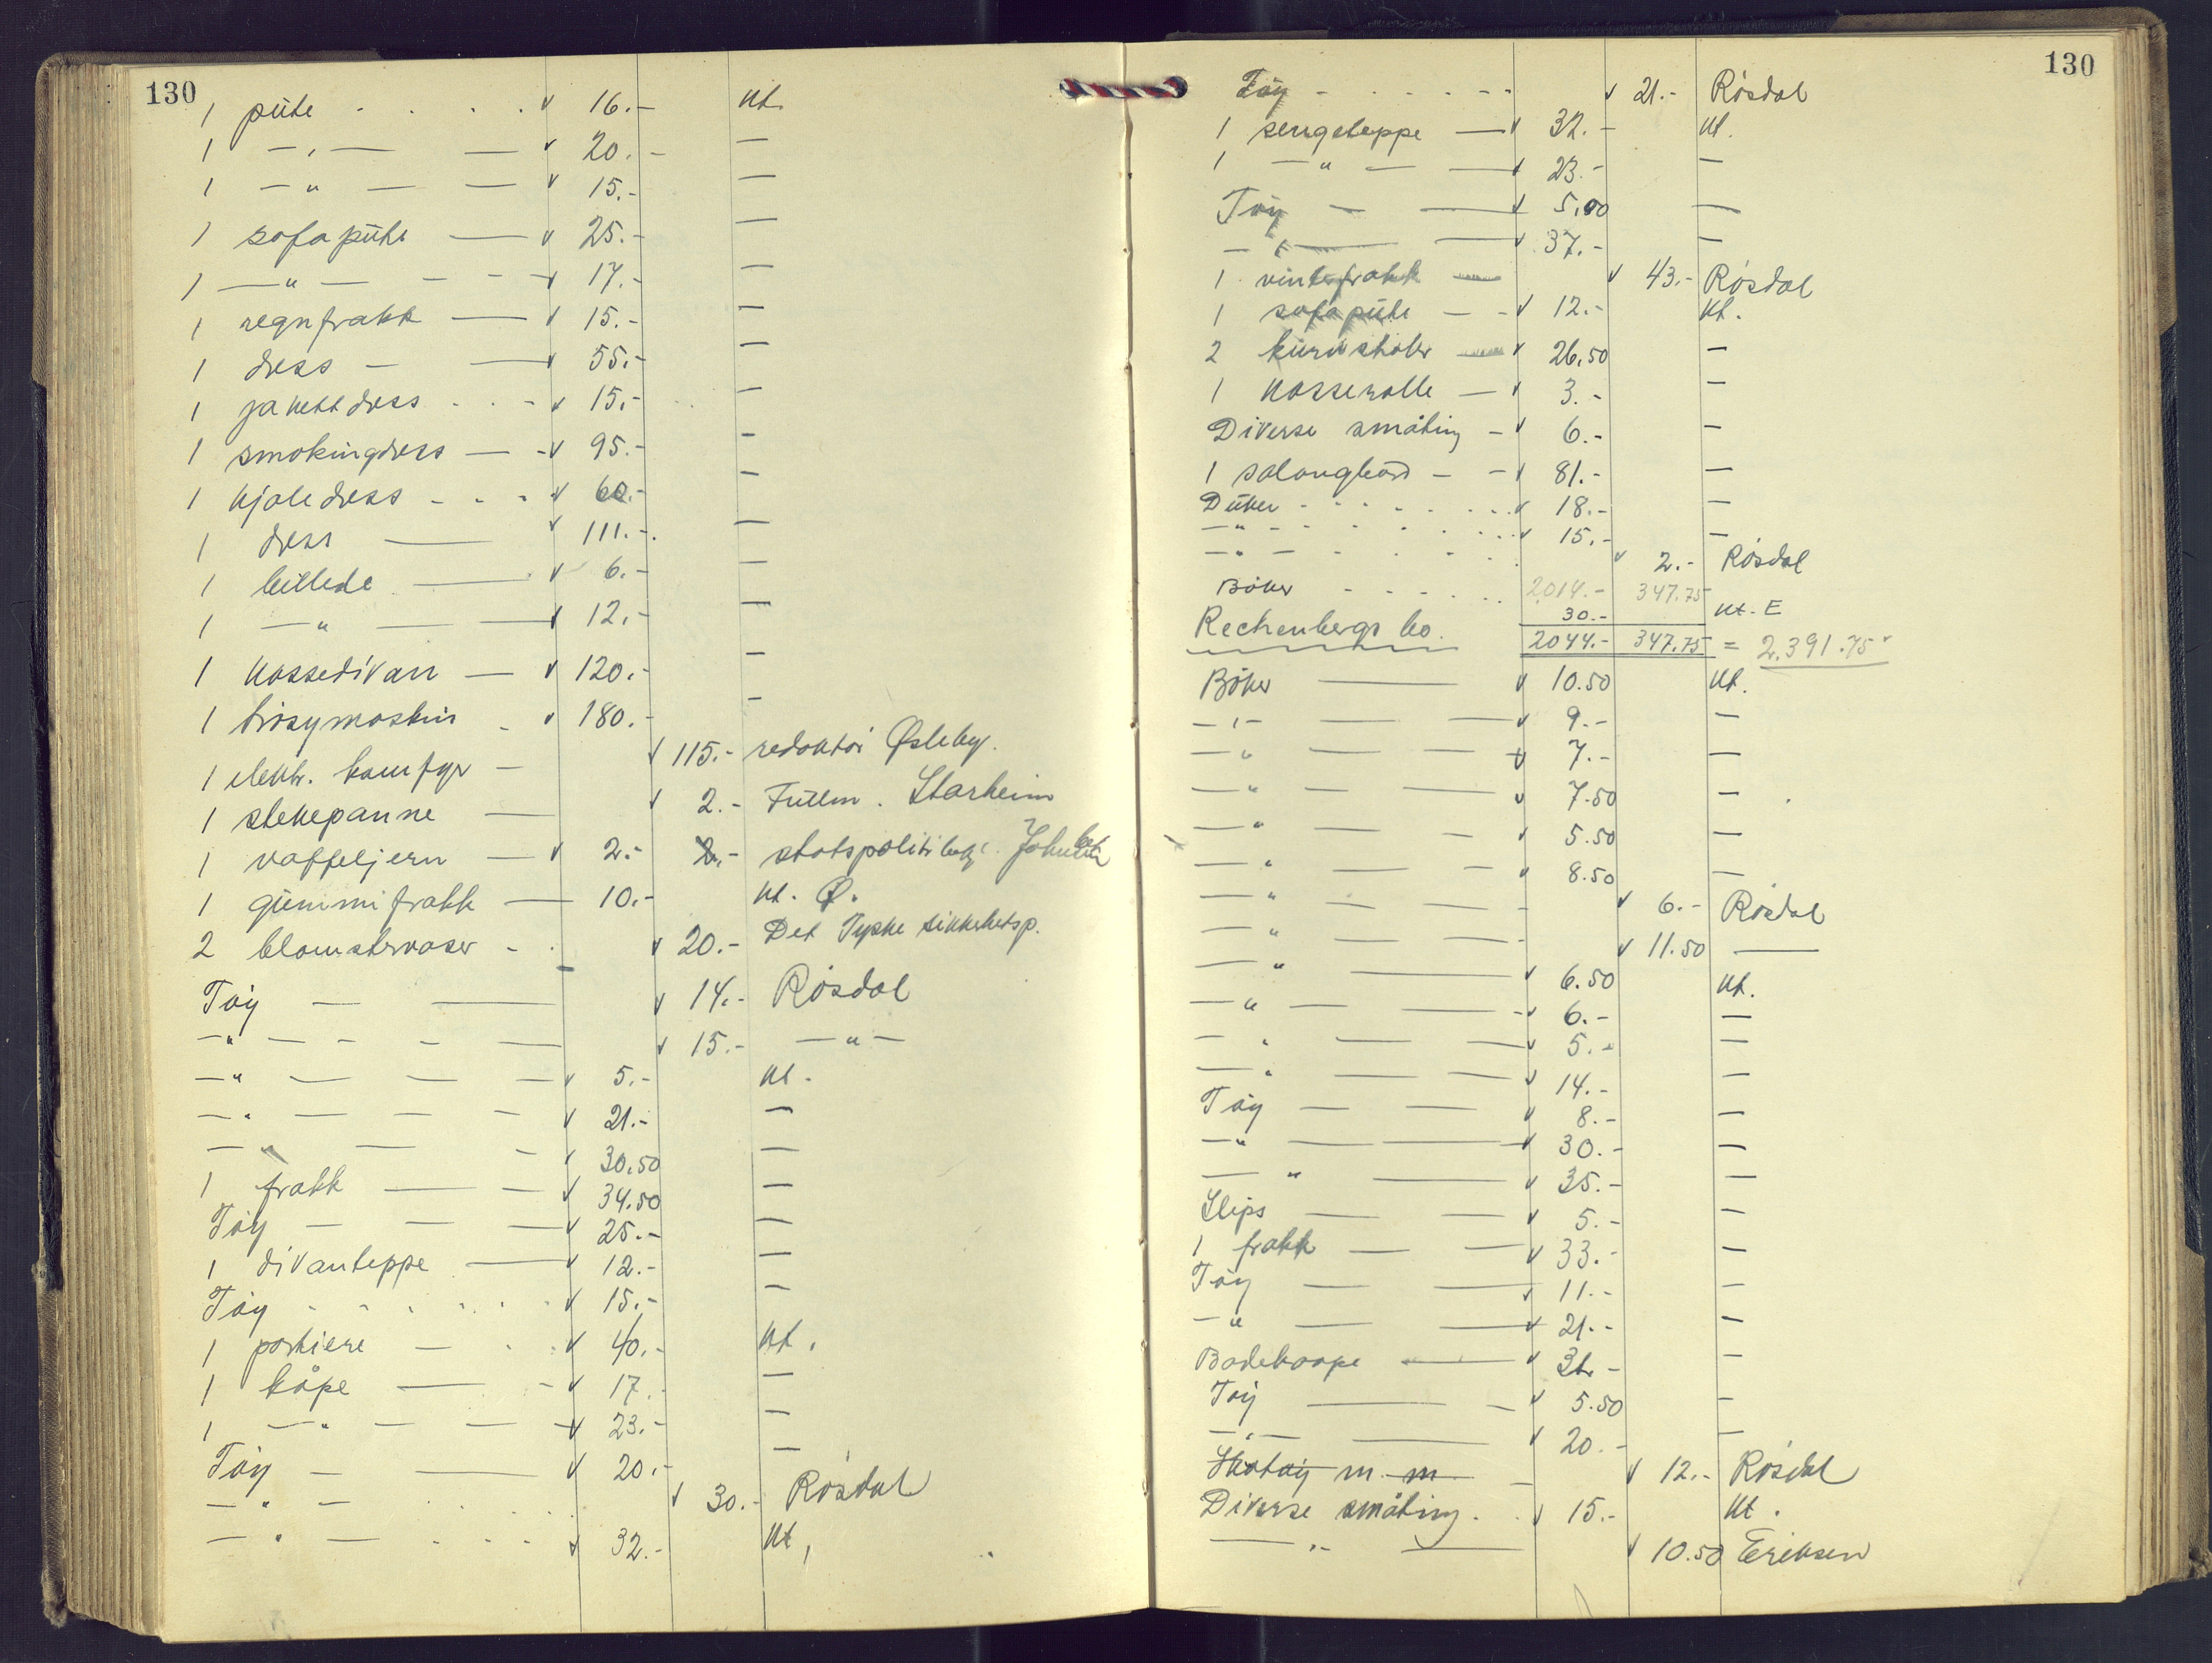 130
1 pute . . . . v 16.- kt.
1 -"- — v 20.- —
1 -"- — — v 15.- —
1 sofapute — v 25.- —
1 -"- - - v 17.- —
1 regnfrakk — v 15.- —
1 dress - — v 55.- —
1 jakettdress . . - v 15.- —
1 smokingdress — - v 95.- —
1 kjoledress - - - v 60.- —
1 dress — v 111.- —
1 billede — v 6.- —
1 -"- — — v 12.- —
1 kassedivan — v 120.- —
1 trøsymaskin - v 180.- —
1 elektr. komfyr - v 115.- redaktør Østbye.
1 stekepanne — v 2.- Fullm. Starheim
1 vaffeljern — v 2.- 2.- statspolitibetj.
1 gummifrakk — 10.- kt. Ø.
2 blomstervaser - . v 20.- Det Tyske sikkerhetsp.
Tøy — — v 14.- Røsdal
-"- - - — v 15.- -"-
-"- — — — v 5.- kt.
-"- — — - v 21.- —
-"- — - v 30.50 —
1 frakk — — v 34.50 —
Tøy — — — v 25.- —
1 divanteppe — v 12.- —
Tøy . . . . . . v 15.- —
1 portiere — . . v 40.- kt.
1 kåpe — - v 17.- —
1 -"- — — v 23.- —
Tøy — — v 20.- —
-"- . . . v 30.- Røsdal
-"- . . . v 32.- kt.
130
Tøy - . . . - - v 21.- Røsdal
1 sengeteppe — v 32.- kt.
1 -"- — v 23.- —
Tøy — — v 5.00 —
-"- — v 37.- —
1 vinterfrakk — v 43.- Røsdal
1 sofapute — - v 12.- kt.
2 kurvstoler — v 26.50 —
1 kasserolle — v 3.- —
Diverse småting - v 6.- —
1 salongbord - - v 81.- —
Duker - . . . . . v 18.- —
-"- - . . . . . v 15.- —
-"- - . . - . v 2.- Røsdal
2014.- 347.75
Bøker - . . . . 30.- kt. E
Rechenbergs bo. 2044.- 347.75 = 2.391.75
Bøker — v 10.50 kt.
-"- — — v 9.- —
-"- — — v 7.- —
-"- — — v 7.50 —
-"- — - v 5.50 —
-"- — — v 8.50 —
-"- — — - v 6.- Røsdal
-"- — — - v 11.50 —
-"- — v 6.50 kt.
-"- — — v 6.- —
-"- — — v 5.- —
-"- — — v 14.- —
Tøy — — v 8.- —
-"- — — v 30.- —
-"- — v 35.- —
Slips — — v 5.- —
1 frakk — — v 33.- —
Tøy — — v 11.- —
-"- — — v 21.- —
Badekaape — v —
Tøy — - v 5.50 —
-"- — v 20.- —
Skotøy m. m. - v 12.- Røsdal
Diverse småting . . v 15.- kt.
-"- — v 10.50 Eriksen